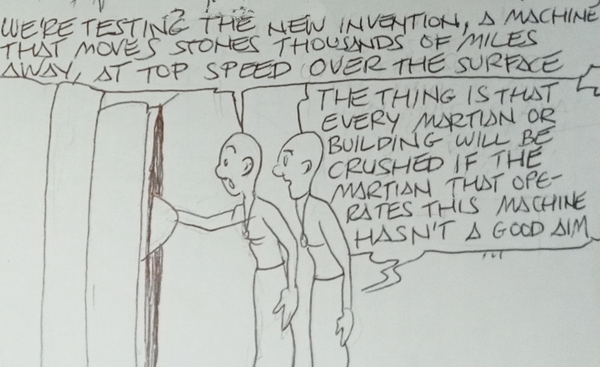 WE'RE TESTING THE NEW INVENTION, A MACHINE
THAT MOVES STONES THOUSANDS OF MILES
AWAY, AT TOP SPEED OVER THE SURFACE
THE THING IS THAT
EVERY MARTIAN OR
BUILDING WILL BE
CRUSHED IF THE
MARTIAN THAT OPE-
RATES THIS MACHINE
HASN'T A GOOD AIM